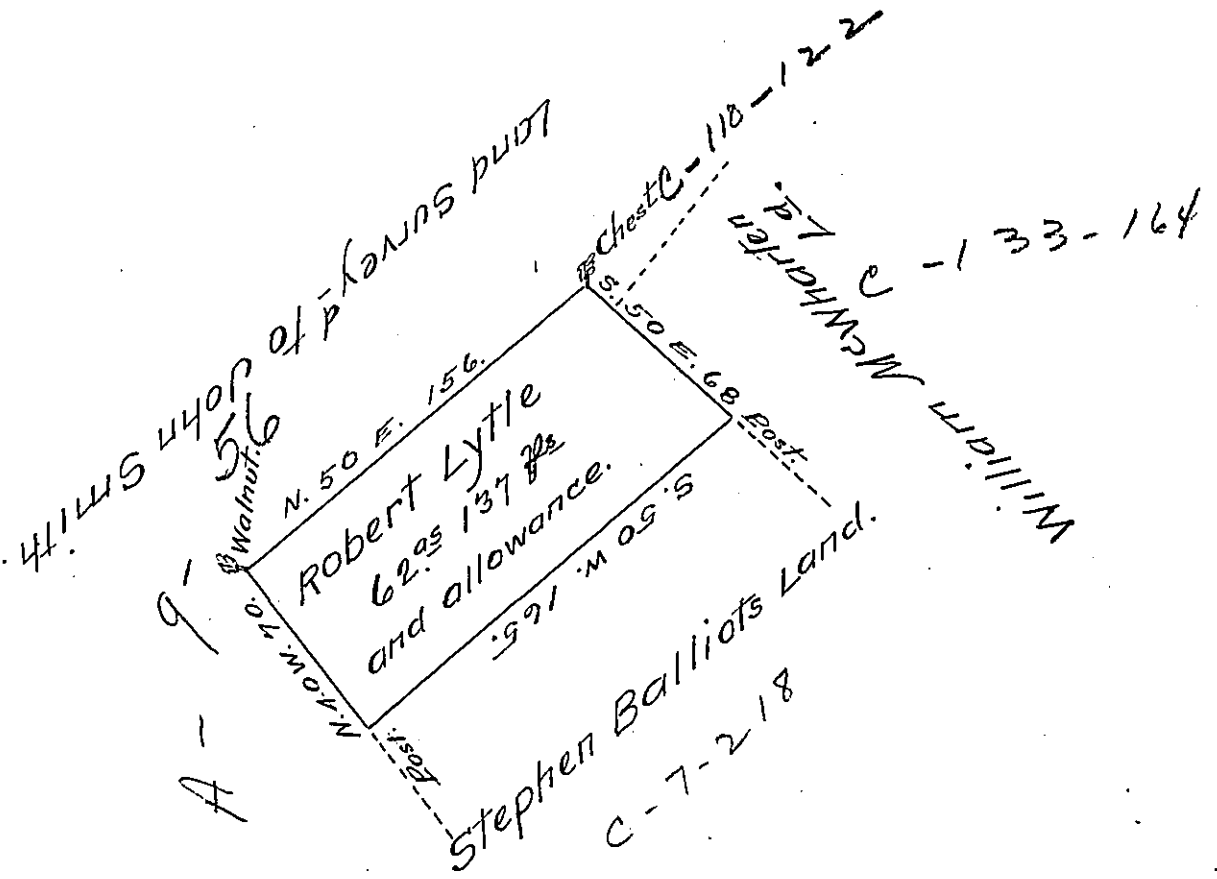 Land Survey'd to John Smith.
A - 91
56
Walnut.
N. 50 E. 156.
Chest
C-110-122
S. 50 E. 68
Post.
William McWharten
Ld.
C-133-164
Robert Lytle
62.as 137 ps
and allowance.
S. 50 W. 165.
N. 40 W. 70.
Post.
Stephen Balliots Land.
C-7-218